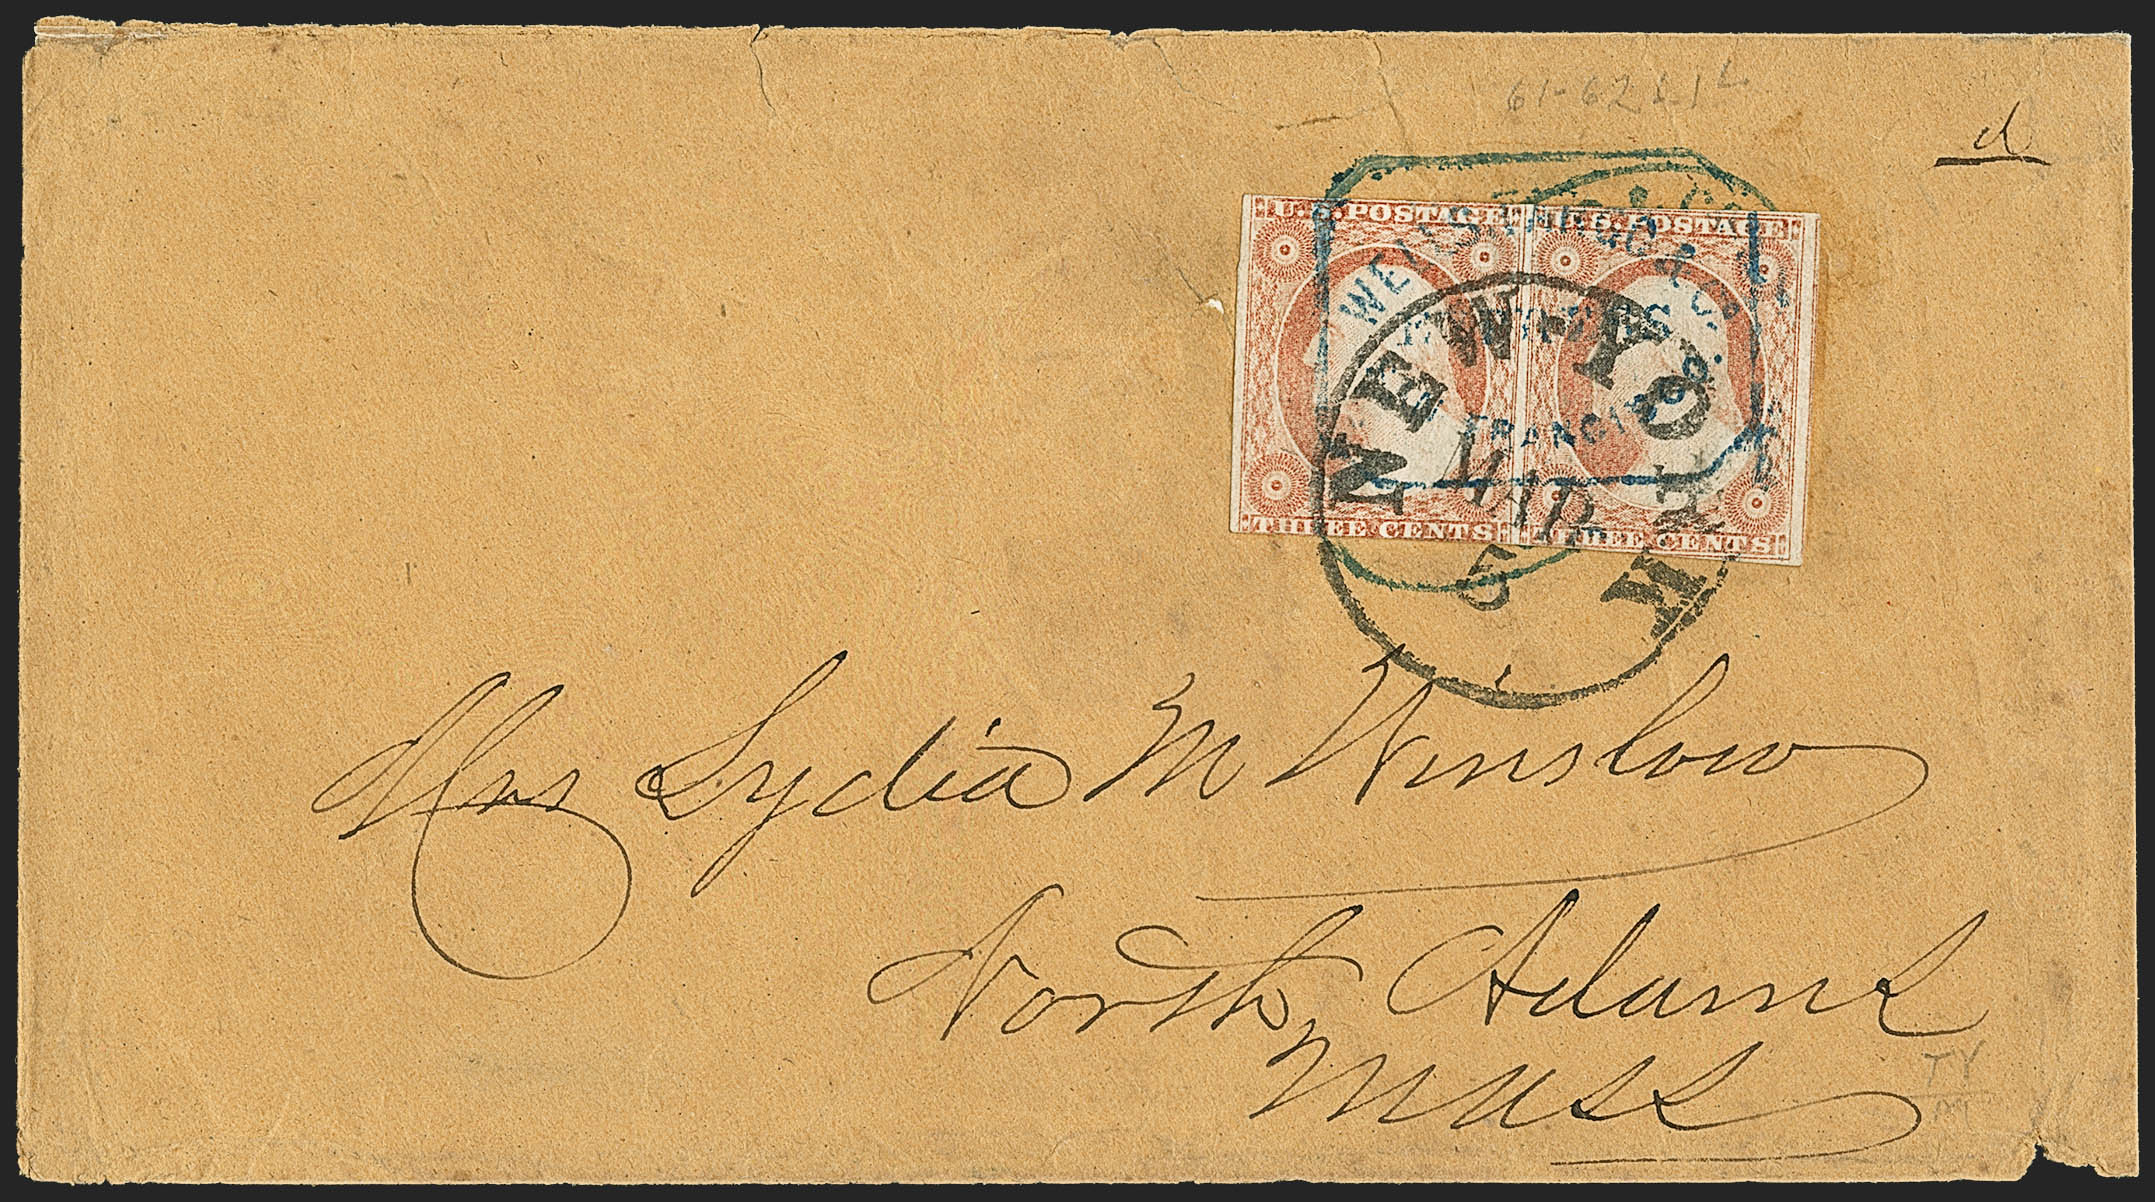 61-62 L1
d
U.S. POSTAGE U.S. POSTAGE
WELLS, FARGO & CO.
EXPRESS
FRANCISCO
NEW-YORK
MAR
5
THREE CENTS THREE CENTS
Mrs Lydia M Winslow
North Adams
Mass
TY
M